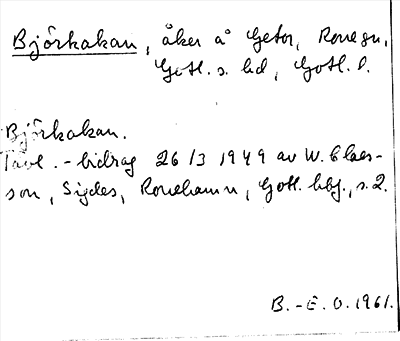 Björkakan, åker å Getor, Rone sn,
Gotl. s. hd, Gotl. l.
Björkakan.
Tävl. - bidrag 26/3 1949 av W. Claes-
son, Sigdes, Ronehamn, Gotl. hbf., s. 2.
B. - E. O. 1961.